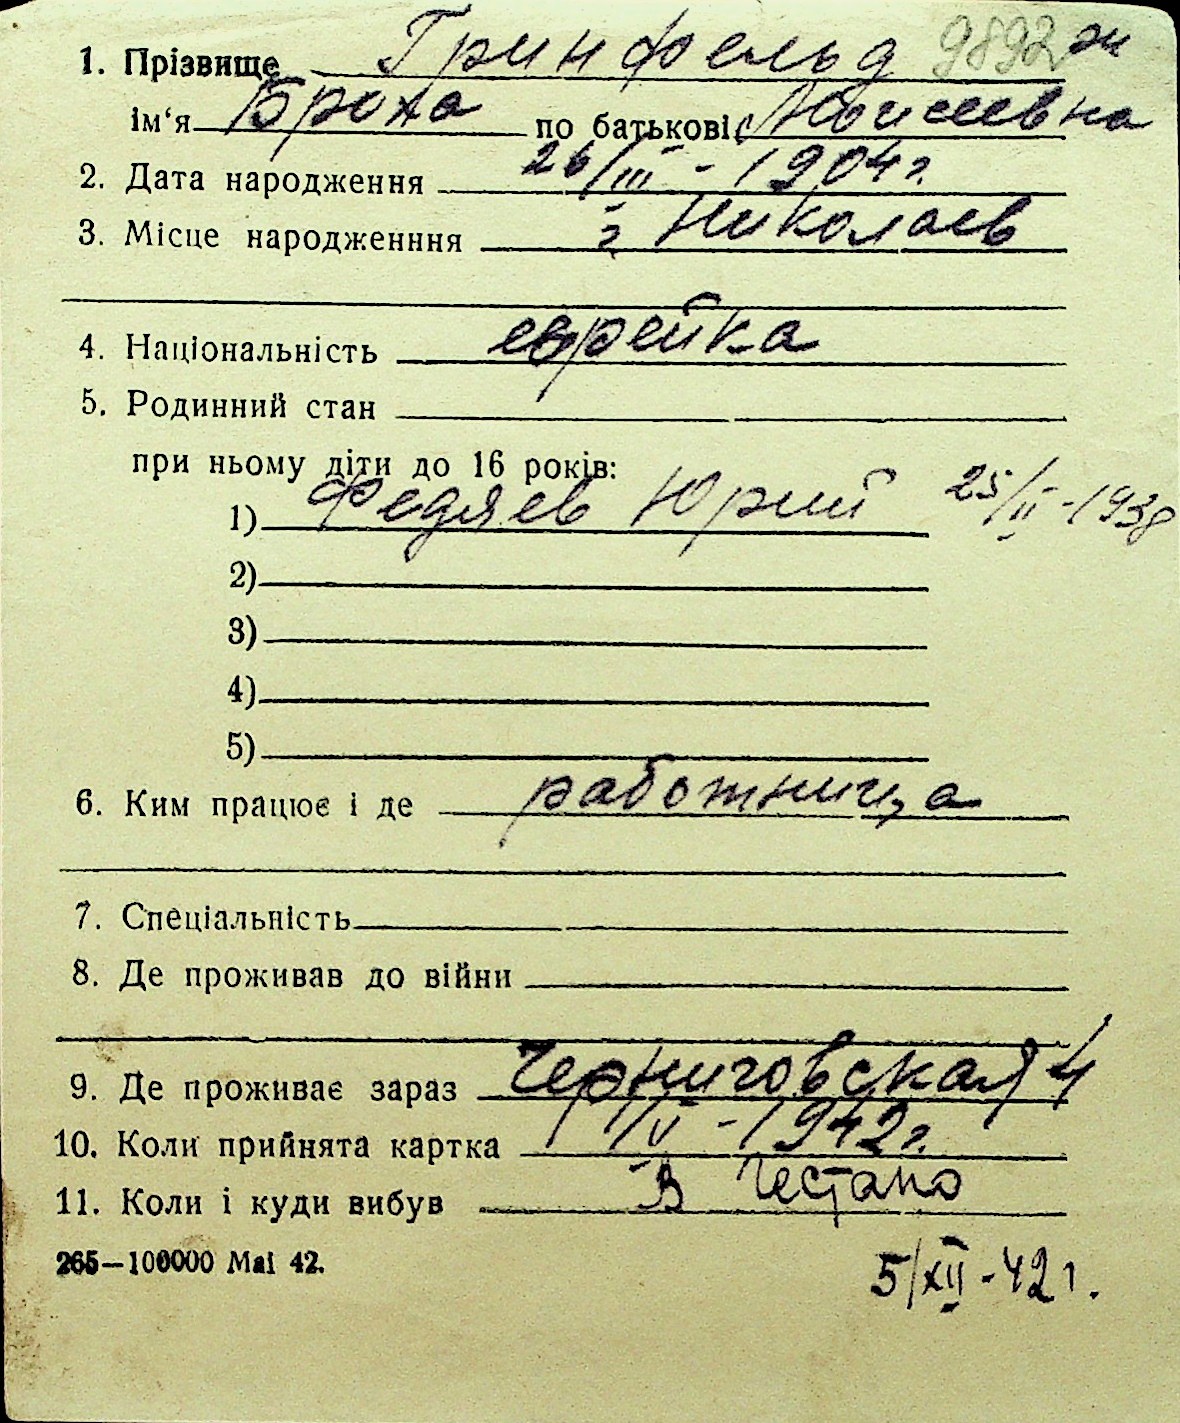 1. Прізвище Гринфельд 9892 ж
ім‘я Броха по батькові Моисеевна
2. Дата народження 26/III - 1904 г.
3. Місце народженння г. Николаев
4. Національність еврейка
5. Родинний стан
при ньому діти до 16 років:
1) Федяев Юрий 25/II-1938
2)
3)
4)
5)
6. Ким працює і де работница
7. Спеціальність
8. Де проживав до війни
9. Де проживає зараз Черниговская 4
10. Коли прийнята картка 1/V - 1942 г.
11. Коли і куди вибув В Гестапо
265—100000 Маі 42.
5/XII - 42 г.